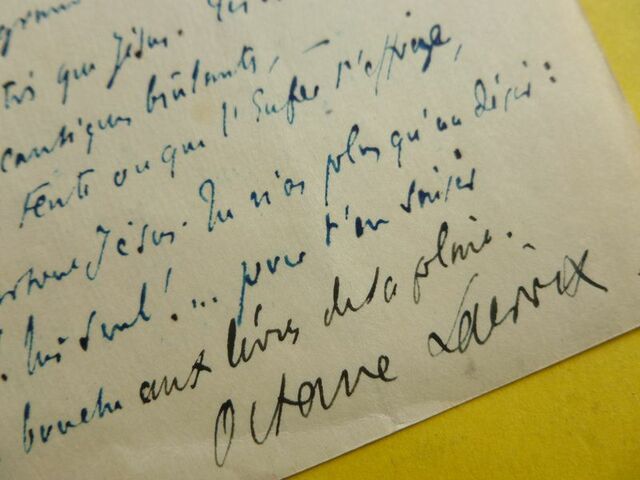 que Jésus.
cantiques brûlants, —
tente ou que l'Enfer t'effraye,
Jésus. Tu n'as plus qu'un désir :
lui seul !... pour t'en saisir
bouche aux lèvres de sa plaie.
Octave Lacroix